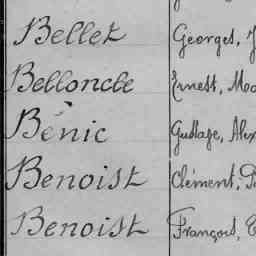 Bellet Georges, J
Belloncle Ernest, Ma
Bénic Gustave, Alex
Benoist Clément, Pa
Benoist François, E